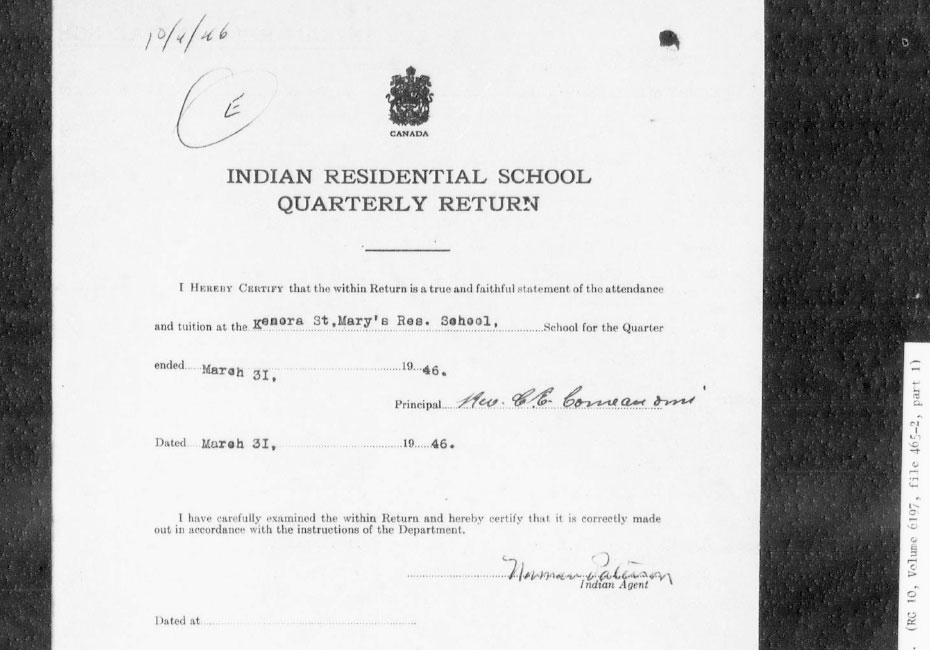 10/4/46
E
CANADA
INDIAN RESIDENTIAL SCHOOL
QUARTERLY RETURN
I HEREBY CERTIFY that the within Return is a true and faithful statement of the attendance
and tuition at the Kenora St,Mary's Res. School, School for the Quarter
ended March 31, 19 46.
Principal Rev. C.E. Comeau omi
Dated March 31, 19 46.
I have carefully examined the within Return and hereby certify that it is correctly made
out in accordance with the instructions of the Department.
Norman Paterson
Indian Agent
Dated at
(RG 10, Volume 6197, file 465-2, part 1)